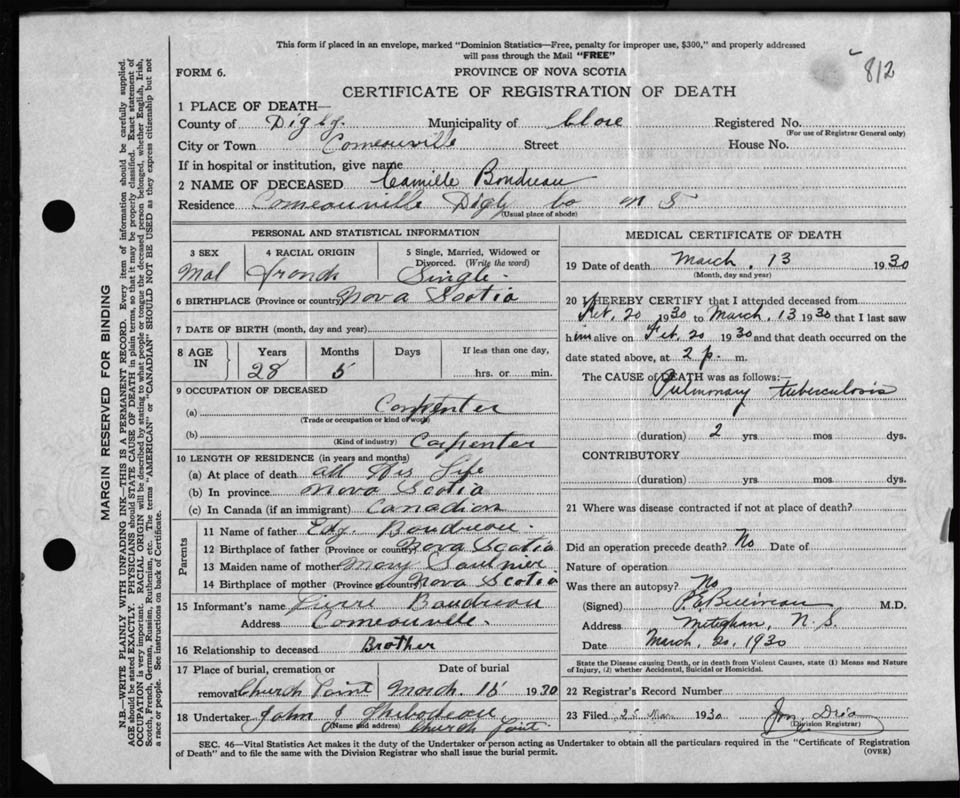 This form if placed in an envelope, marked "Dominion Statistics—Free, penalty for improper use, $300," and properly addressed
will pass through the Mail "FREE"
812
FORM 6.
PROVINCE OF NOVA SCOTIA
CERTIFICATE OF REGISTRATION OF DEATH
1 PLACE OF DEATH—
County of Digby. Municipality of Clare Registered No.
(For use of Registrar General only)
City or Town Comeauville Street House No.
If in hospital or institution, give name
2 NAME OF DECEASED Camille Boudreau
Residence Comeauville Digby Co N S
(Usual place of abode)
PERSONAL AND STATISTICAL INFORMATION
3 SEX 4 RACIAL ORIGIN 5 Single, Married, Widowed or
Divorced. (Write the word)
Mal French Single.
6 BIRTHPLACE (Province or country) Nova Scotia
7 DATE OF BIRTH (month, day and year)
8 AGE IN Years Months Days If less than one day,
28 5 hrs. or min.
9 OCCUPATION OF DECEASED
(a) Carpenter
(Trade or occupation or kind of work)
(b) Carpenter
(Kind of industry)
10 LENGTH OF RESIDENCE (in years and months)
(a) At place of death all His Life
(b) In province Nova Scotia
(c) In Canada (if an immigrant) Canadian
Parents
11 Name of father Edg. Boudreau.
12 Birthplace of father (Province or country) Nova Scotia
13 Maiden name of mother Mary Saulnier
14 Birthplace of mother (Province or country) Nova Scotia
15 Informant's name Pierre Boudreau
Address Comeauville.
16 Relationship to deceased Brother
17 Place of burial, cremation or Date of burial
removal Church Point March. 15 1930
18 Undertaker John J Thibodeau
(Name and address) Church Point
MEDICAL CERTIFICATE OF DEATH
19 Date of death March, 13 1930
(Month, day and year)
20 I HEREBY CERTIFY that I attended deceased from
Feb. 20 1930 to March, 13 1930 that I last saw
him alive on Feb. 20 1930 and that death occurred on the
date stated above, at 2 p. m.
The CAUSE of DEATH was as follows:—
Pulmonary tuberculosis
(duration) 2 yrs mos dys.
CONTRIBUTORY
(duration) yrs. mos. dys.
21 Where was disease contracted if not at place of death?
Did an operation precede death? No Date of
Nature of operation
Was there an autopsy? No
(Signed) M.D.
Address Meteghan, N. S.
Date March, 20, 1930
State the Disease causing Death, or in death from Violent Causes, state (1) Means and Nature
of Injury, (2) whether Accidental, Suicidal or Homicidal.
22 Registrar's Record Number
23 Filed 25 Mar 1930
(Division Registrar)
SEC. 46—Vital Statistics Act makes it the duty of the Undertaker or person acting as Undertaker to obtain all the particulars required in the "Certificate of Registration
of Death" and to file the same with the Division Registrar who shall issue the burial permit.
(OVER)
MARGIN RESERVED FOR BINDING
N.B.—WRITE PLAINLY WITH UNFADING INK—THIS IS A PERMANENT RECORD. Every item of information should be carefully supplied.
AGE should be stated EXACTLY. PHYSICIANS should STATE CAUSE OF DEATH in plain terms, so that it may be properly classified. Exact statement of
OCCUPATION is very important. RACIAL ORIGIN will be described by stating to what people or tongue the deceased person belonged, whether English, Irish,
Scotch, French, German, Russian, Ruthenian, etc. The terms "AMERICAN" or "CANADIAN" SHOULD NOT BE USED as they express citizenship but not
a race or people. See instructions on back of Certificate.